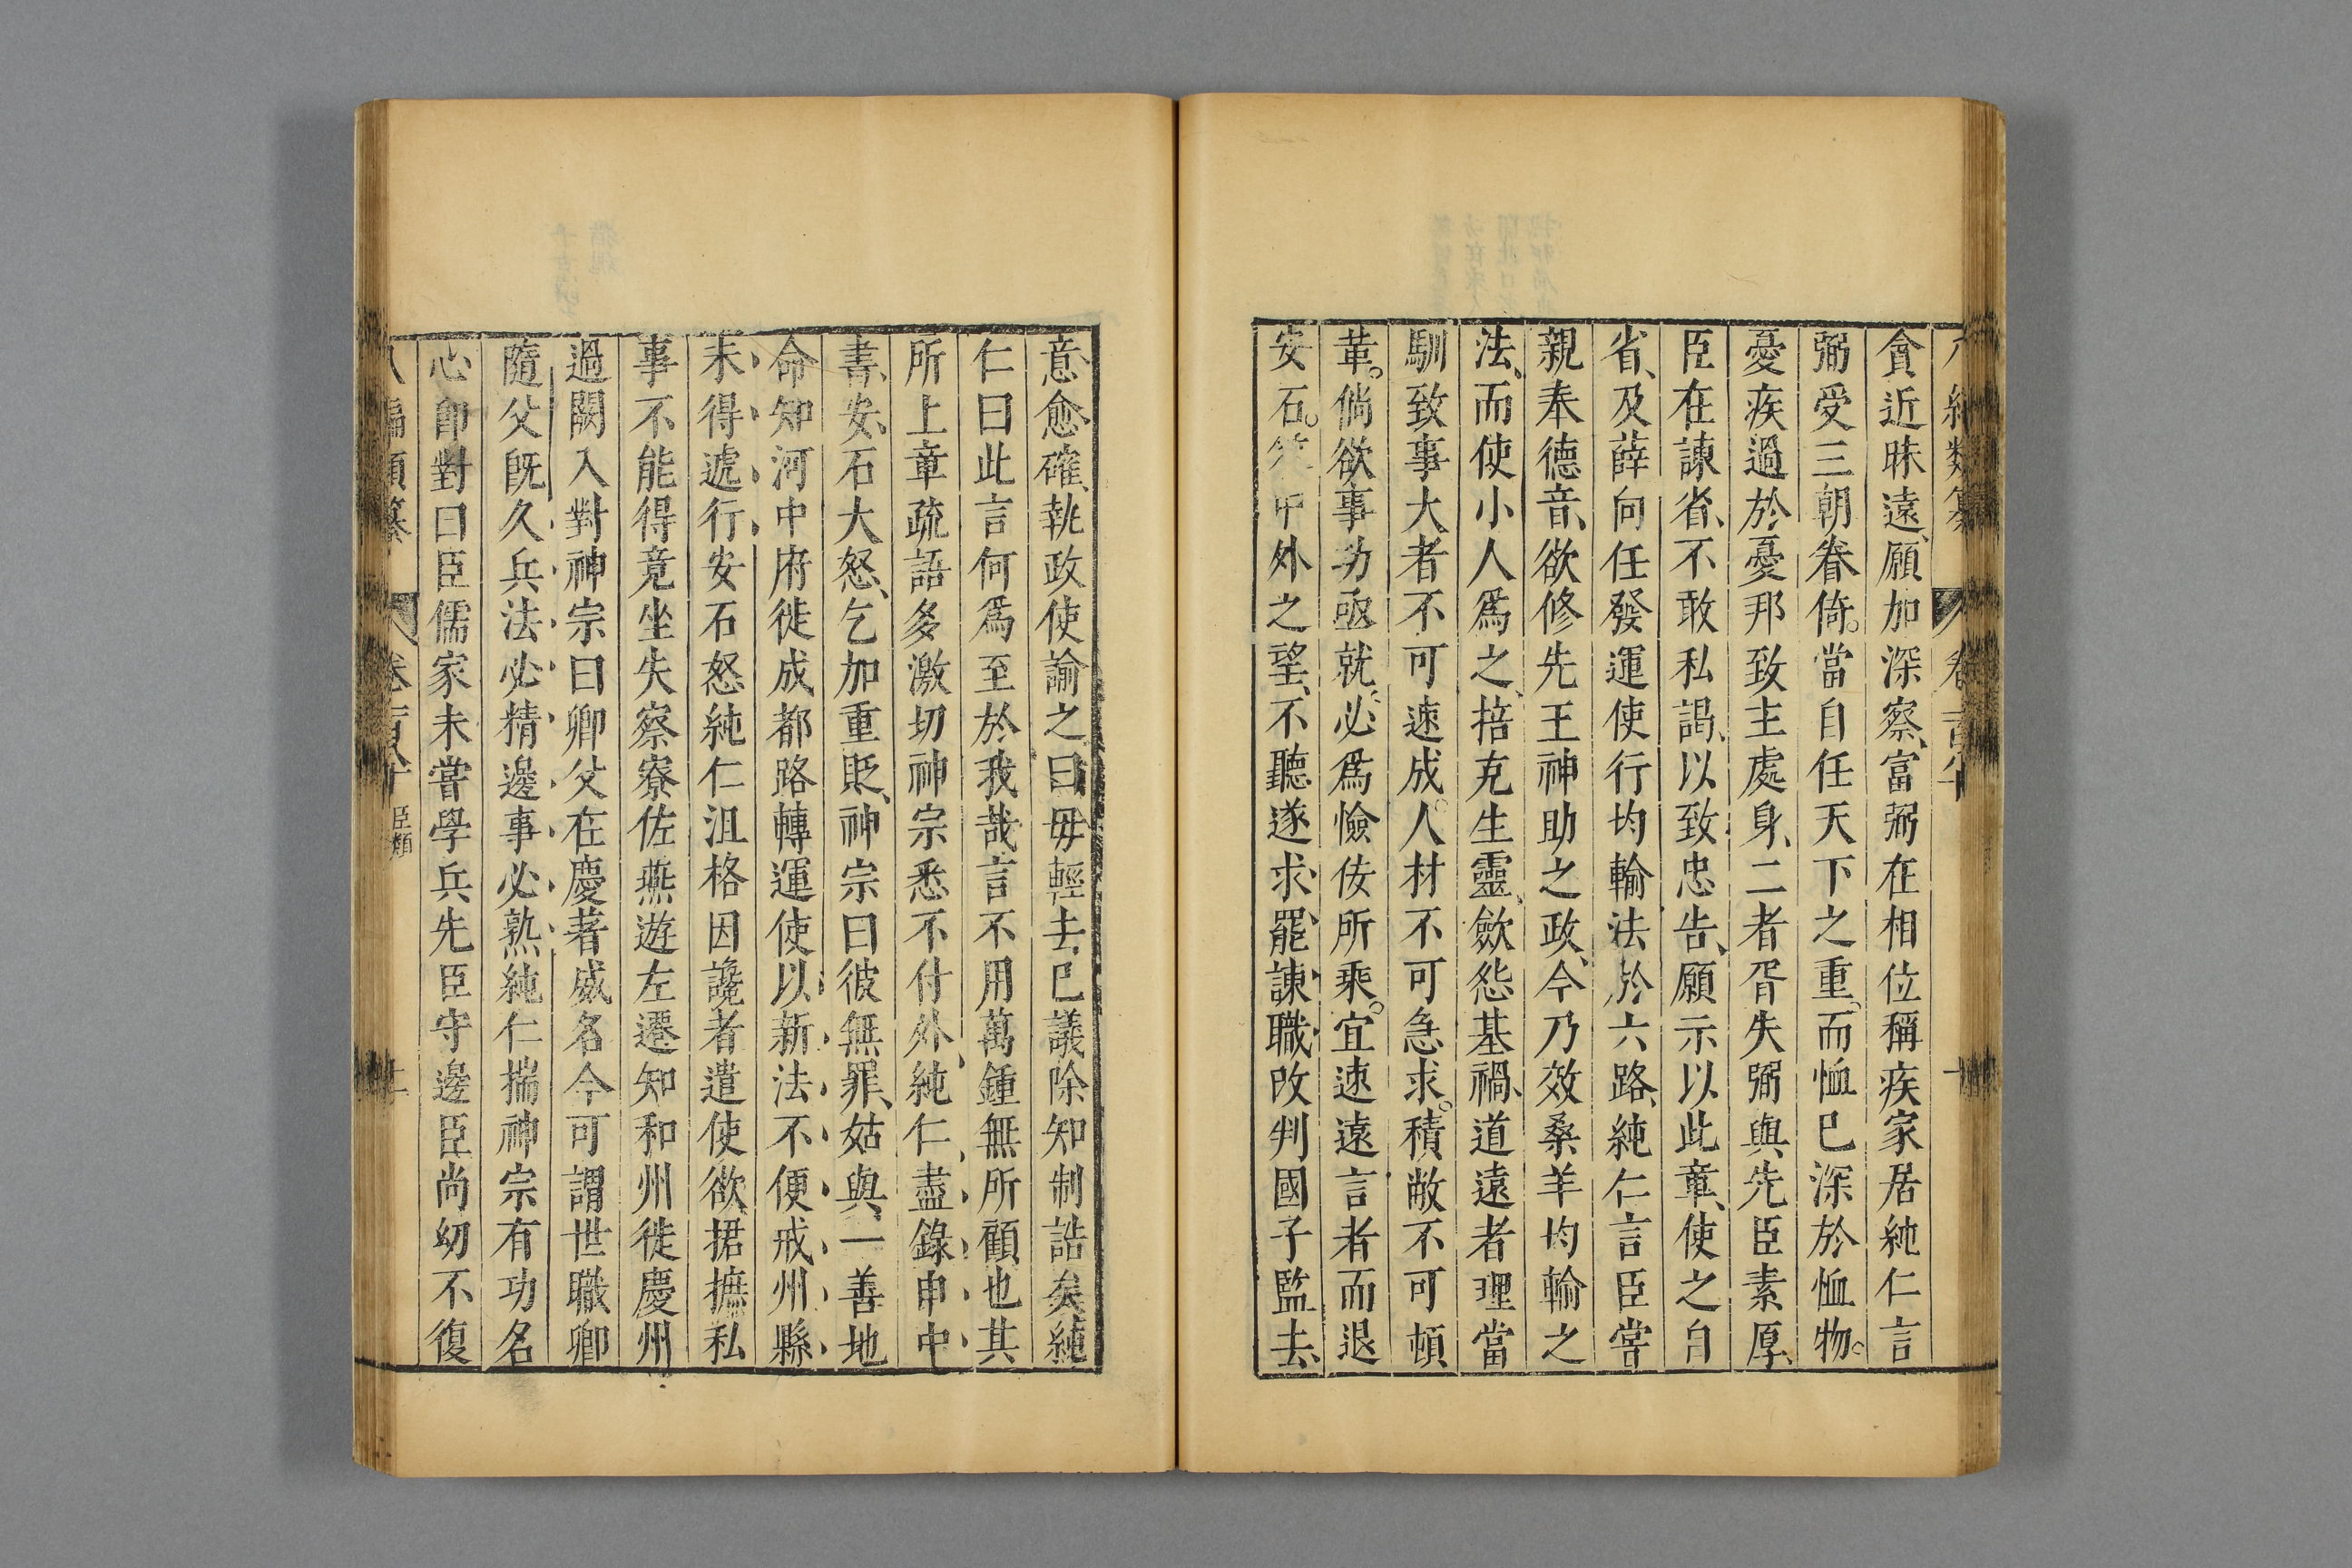 貪近昧遠、願加深察、富弼在相位稱疾家居純仁言
弼受三朝眷倚。當自任天下之重。而恤已深於恤物。
憂疾過於憂邦致主處身、二者胥失弼與先臣素厚、
臣在諫省、不敢私謁、以致忠告、願示以此章、使之自
省、及薛向任發運使行均輸法於六路、純仁言臣嘗
親奉德音、欲修先王神助之政、今乃效桑羊均輸之
法、而使小人爲之、掊克生靈、歛怨基禍、道遠者理當
馴致事大者不可速成。人材不可急求。積敝不可頓
革。倘欲事功亟就、必爲憸佞所乘。宜速遠言者而退
安石。答中外之望、不聽遂求罷諫職改判國子監去、
意愈確、執政使諭之曰毋輕去、已議除知制誥矣純
仁曰此言何爲至於我哉言不用萬鍾無所顧也其
所上章疏語多激切神宗悉不付外、純仁盡錄申中
書、安石大怒、乞加重貶、神宗曰彼無罪、姑與一善地
命知河中府徙成都路轉運使以新法不便戒州縣
未得遽行安石怒純仁沮格因讒者遣使欲捃摭私
事不能得竟坐失察寮佐燕遊左遷知和州徙慶州
過闕入對神宗曰卿父在慶著威名今可謂世職卿
隨父旣久兵法必精邊事必熟純仁揣神宗有功名
心卽對曰臣儒家未嘗學兵先臣守邊臣尚幼不復
編類纂 卷一百八十 臣類 十一